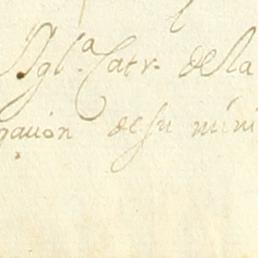 Ygl.ª Catr. de la
gacion de su mini